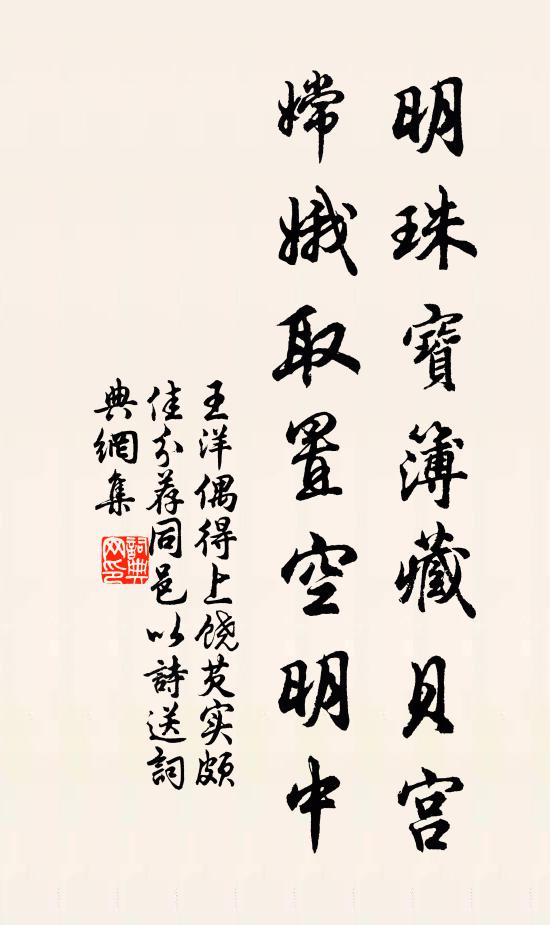 明珠寶簿藏貝宫
嫦娥取置空明中
王洋偶得上饶芡实颇
佳分荐同邑以詩送詞
典網集
詞典
网印